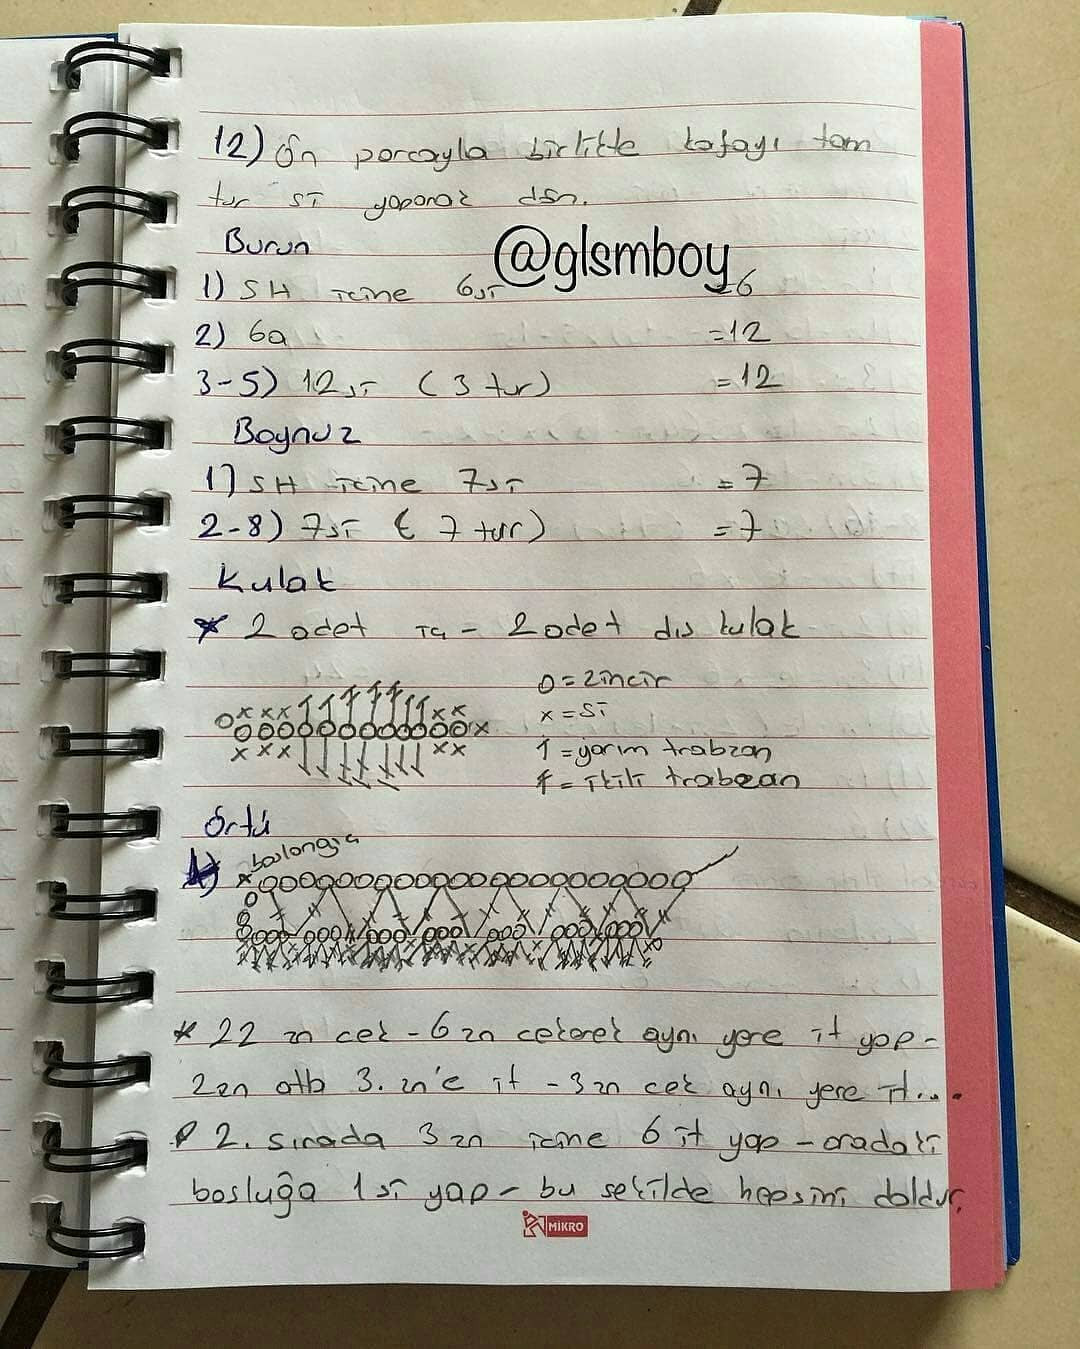 12) Ön parçayla birlikte kafayı tam
tur si yaparak dön.
Burun
@glsmboy
1) SH içine 6si =6
2) 6a =12
3-5) 12si (3 tur) =12
Boynuz
1) SH içine 7si =7
2-8) 7si ( 7 tur) =7
Kulak
* 2 adet iç - 2 adet dış kulak
o = zincir
x = si
T = yarım trabzan
Ŧ = ikili trabzan
Örtü
başlangıç
* 22 zn çek - 6 zn çekerek aynı yere it yap -
2zn atla 3. zn'e it - 3 zn çek aynı yere it...
2. sırada 3 zn içine 6 it yap - aradaki
boşluğa 1 si yap - bu şekilde hepsini doldur.
MİKRO